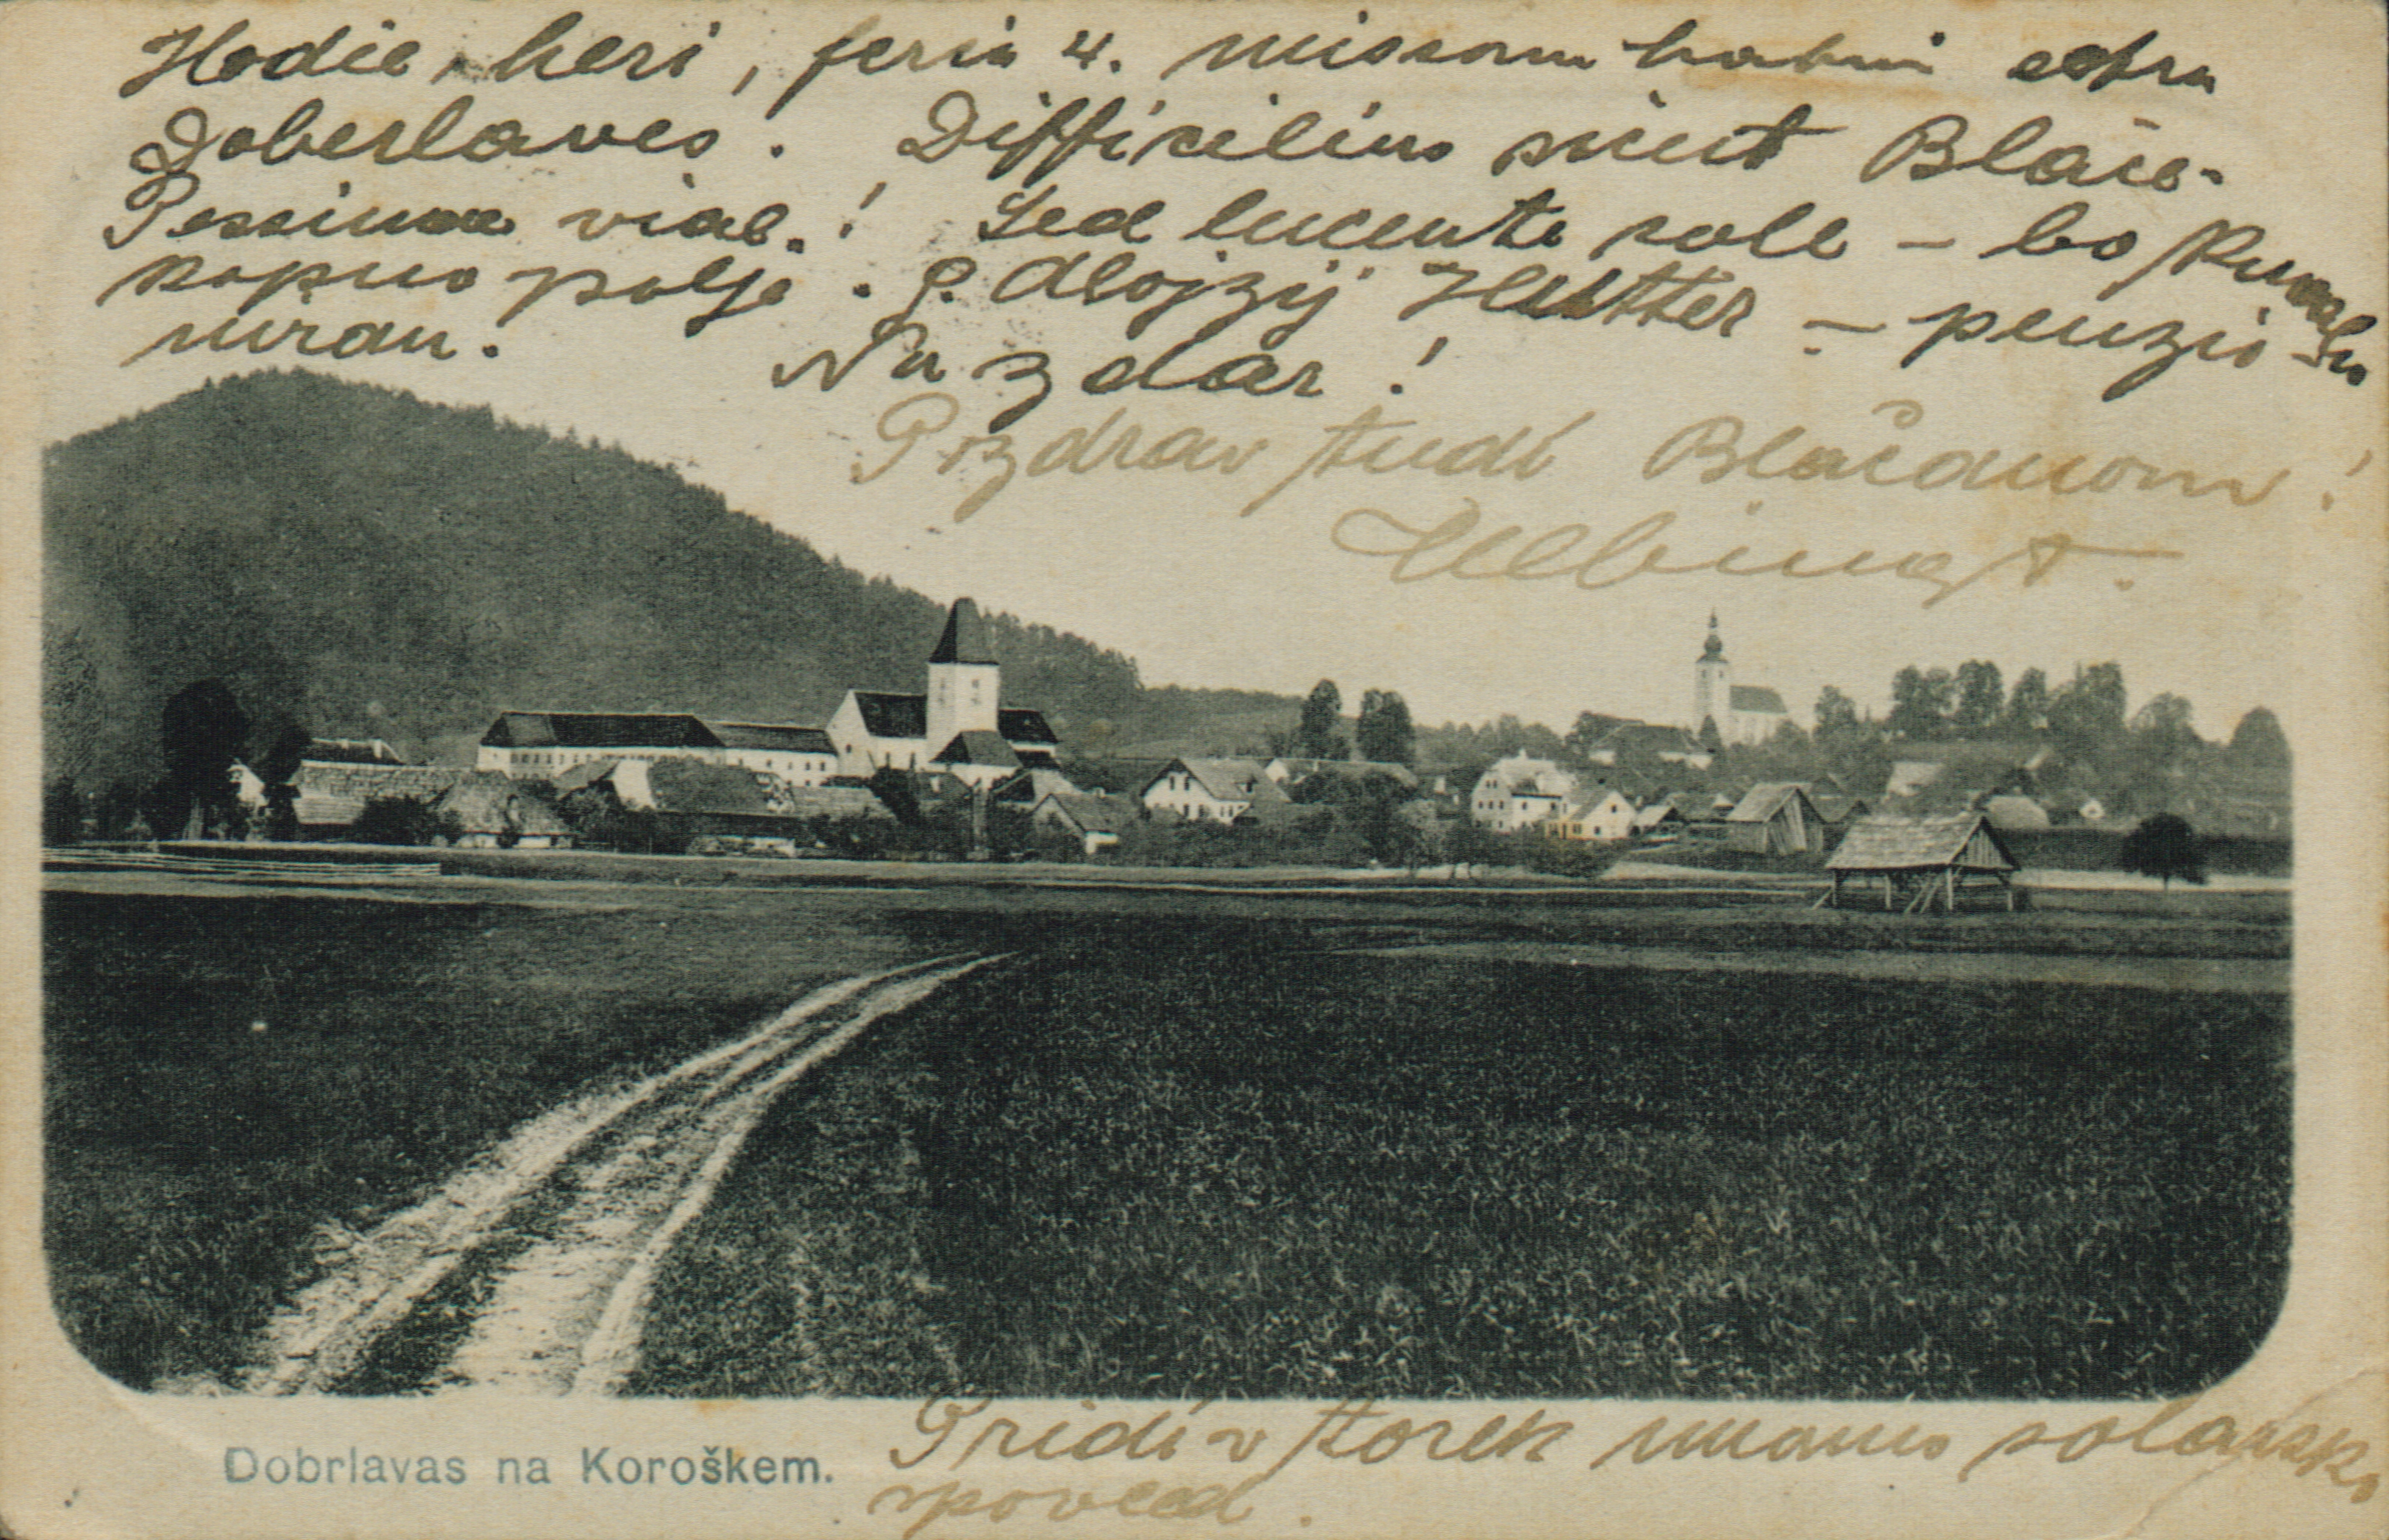 Hodie, heri, feria 4. missam habui extra
Doberlaves. Difficilius scient Blače.
Pessimae viae.! Sed lucente sole – bo kmalu
kopno polje. P. Alojzij Hutter – penzio-
niran.
Na zdar!
Pozdrav tudi Blačanom!
Dobrlavas na Koroškem.
Pridi v torek imamo šolarsko
spoved.